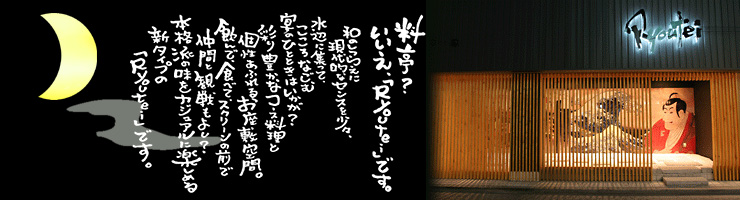 料亭?
いいえ、「Ryoutei」です。
現代的なセンスを少々、
水辺に集って、
こころなじむ
宴のひとときはいかが?
彩り豊かなコース料理と
個性あふれるお座敷空間。
飲んで、食べて、スクリーンの前で
仲間と観戦もよし?
本格派の味をカジュアルに楽しめる
新タイプの
「Ryoutei」です。
Ryoutei